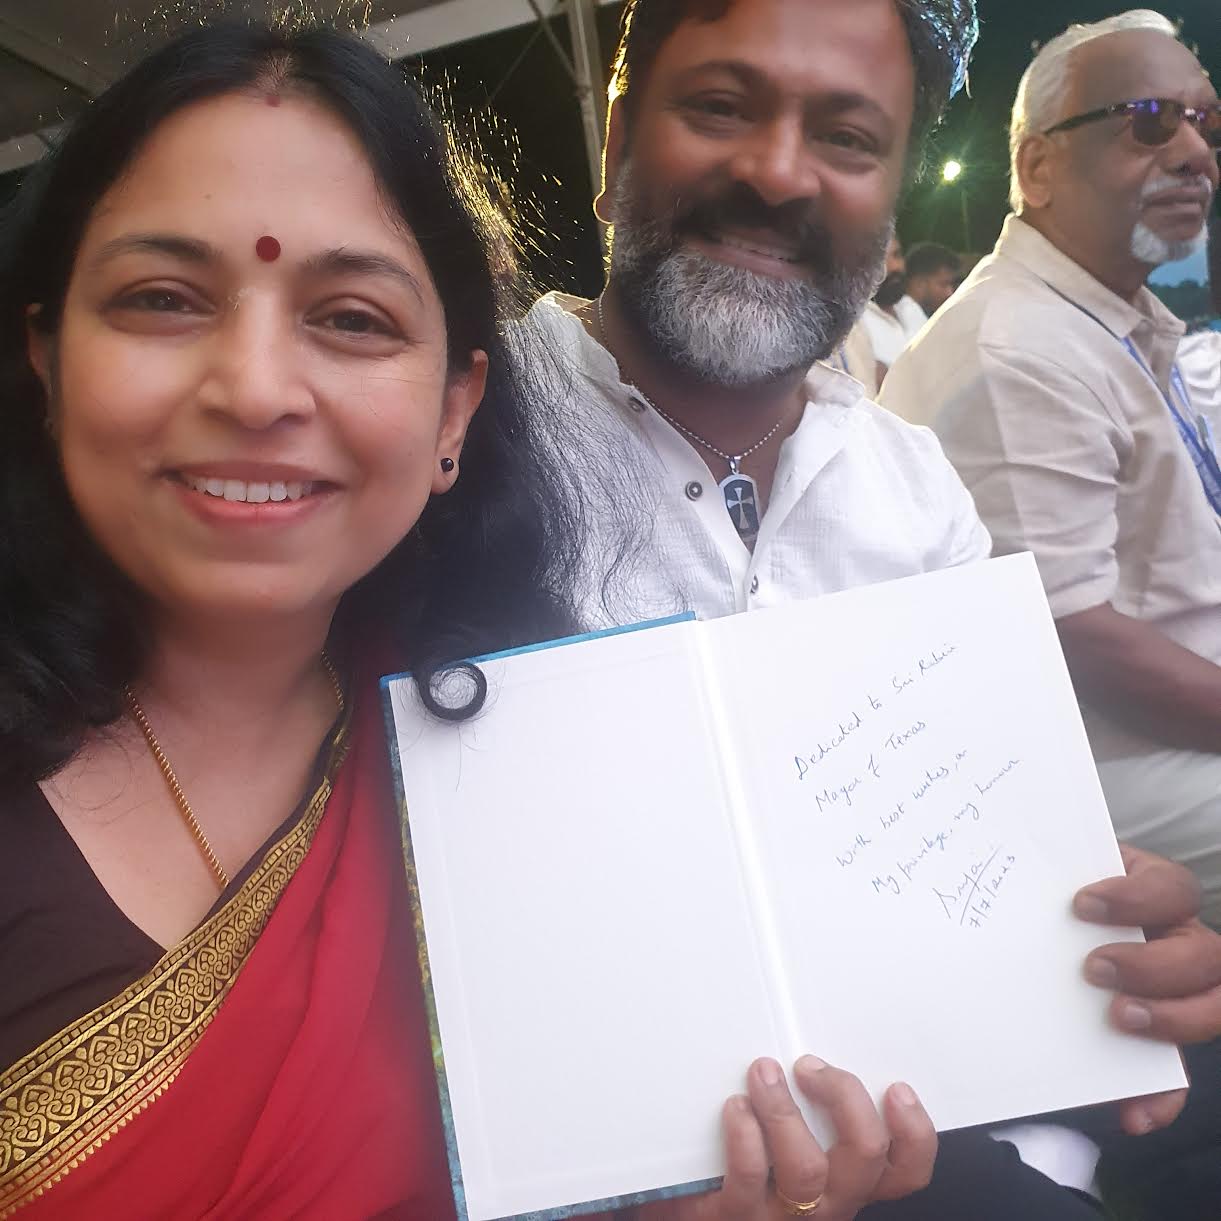 Dedicated to Sri Robin
Mayor of Texas
With best wishes, on
My privilege, my honour
7/7/2023